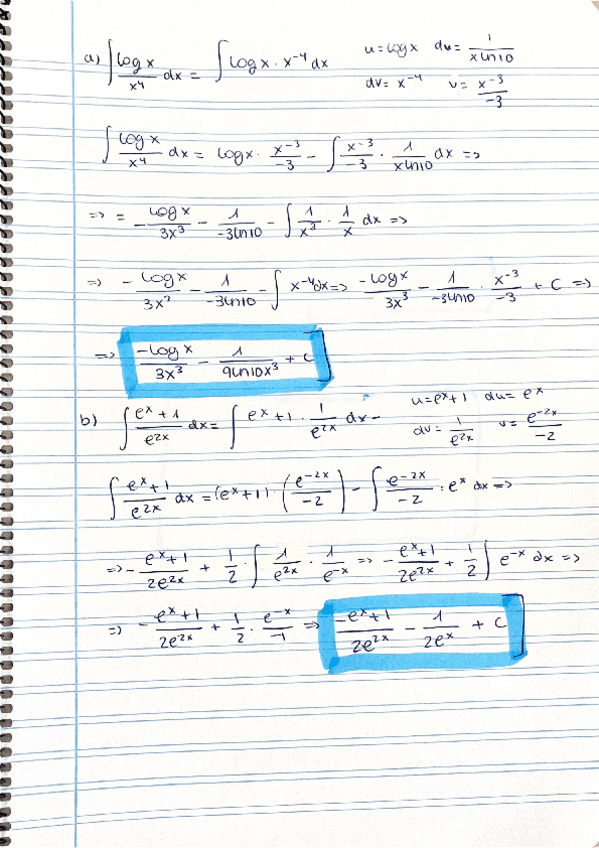 a) ∫ log x / x⁴ dx = ∫ log x · x⁻⁴ dx u = log x du = 1 / x ln10
dv = x⁻⁴ v = x⁻³ / -3
∫ log x / x⁴ dx = log x · x⁻³ / -3 - ∫ x⁻³ / -3 · 1 / x ln10 dx =>
=> = - log x / 3x³ - 1 / -3ln10 - ∫ 1 / x³ · 1 / x dx =>
=> - log x / 3x³ - 1 / -3ln10 - ∫ x⁻⁴ dx => -log x / 3x³ - 1 / -3ln10 · x⁻³ / -3 + C =>
=> -log x / 3x³ - 1 / 9ln10x³ + C
b) ∫ eˣ + 1 / e²ˣ dx = ∫ eˣ + 1 · 1 / e²ˣ dx = u = eˣ + 1 du = eˣ
dv = 1 / e²ˣ v = e⁻²ˣ / -2
∫ eˣ + 1 / e²ˣ dx = (eˣ + 1) · (e⁻²ˣ / -2) - ∫ e⁻²ˣ / -2 · eˣ dx =>
=> - eˣ + 1 / 2e²ˣ + 1 / 2 · ∫ 1 / e²ˣ · 1 / e⁻ˣ => - eˣ + 1 / 2e²ˣ + 1 / 2 ∫ e⁻ˣ dx =>
=> - eˣ + 1 / 2e²ˣ + 1 / 2 · e⁻ˣ / -1 => -eˣ + 1 / 2e²ˣ - 1 / 2eˣ + C